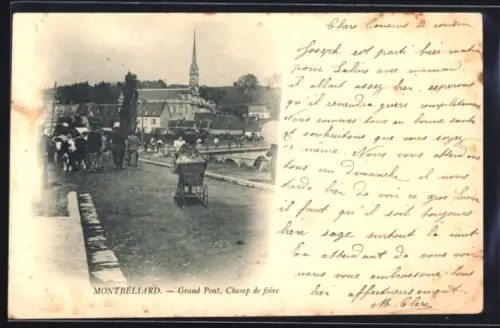 Chers Cousins & cousine
Joseph est parti hier matin
pour Salins avec maman
il allait assez bien, espérons
qu'il reviendra guéri complètement
Nous sommes tous en bonne santé
et souhaitons que vous soyez
de même. Nous vous attendons
tous un dimanche il nous
tarde bien de voir ce gros
il faut qu'il soit toujours
bien sage surtout la nuit
En attendant de vous voir
nous vous embrassons tous
bien affectueusement
M. Clerc
MONTBÉLIARD. — Grand Pont, Champ de foire